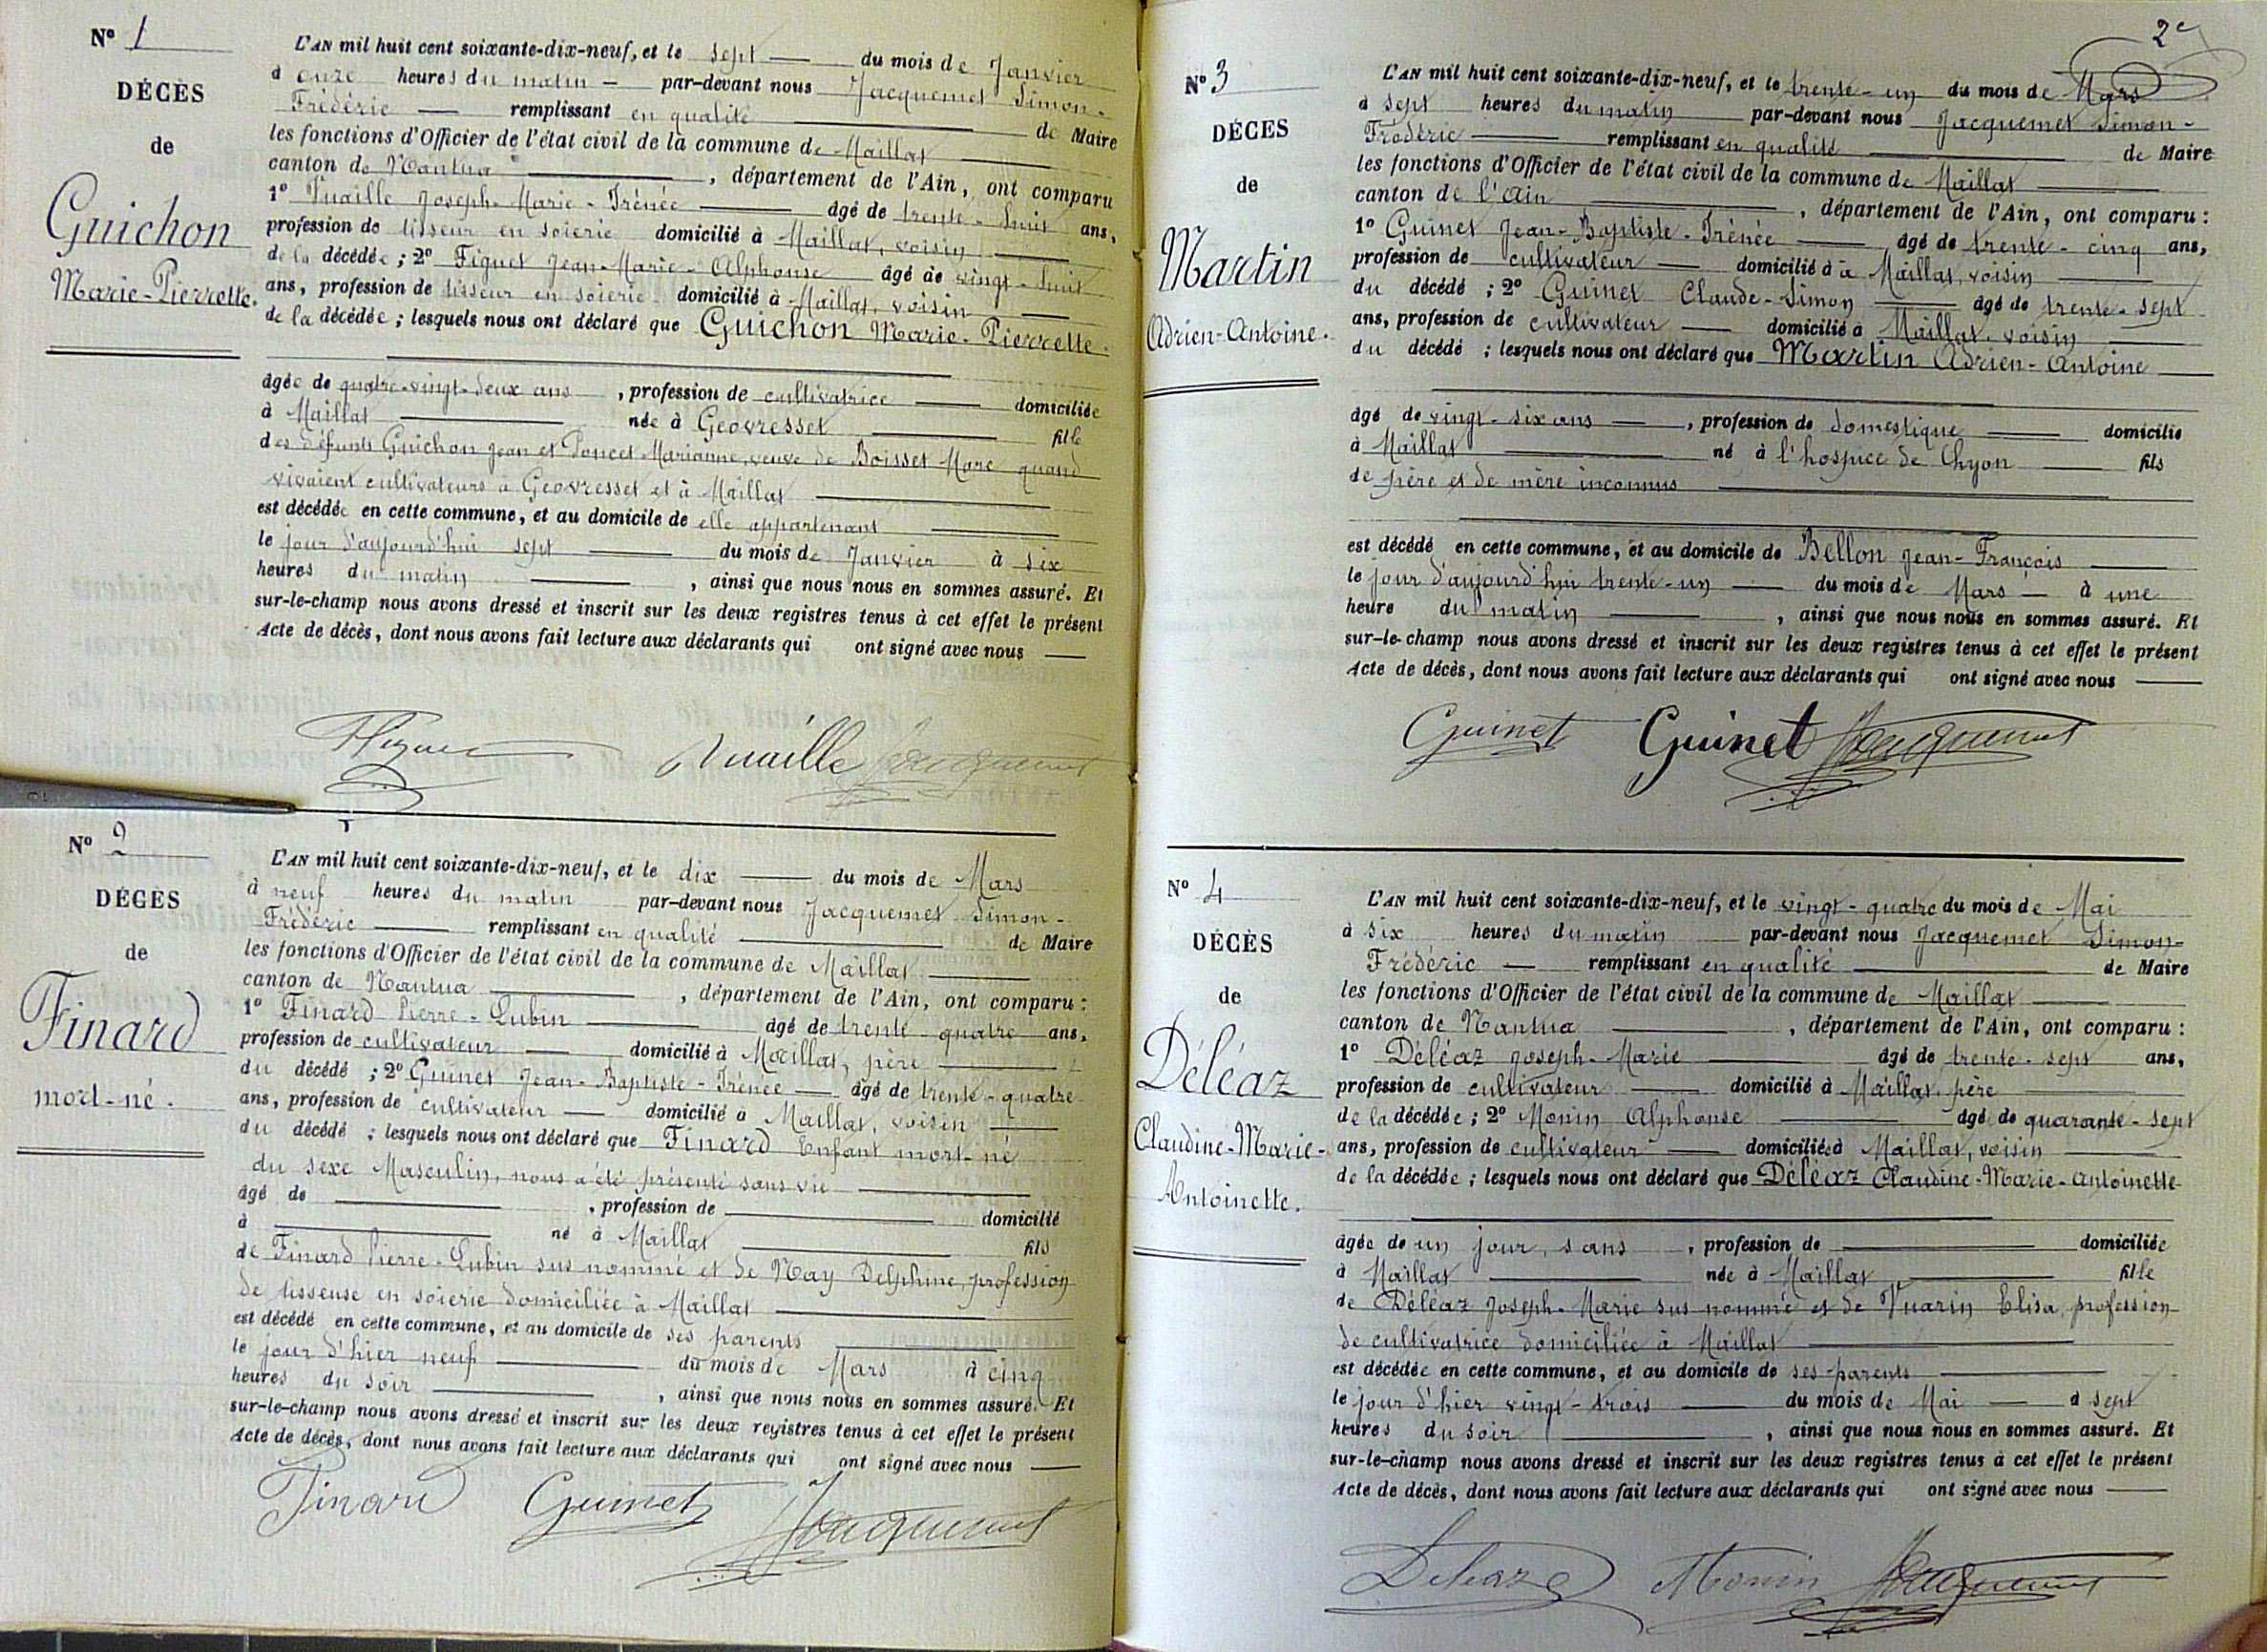 N° 1
DÉCÈS
de
Guichon
Marie-Pierrette.
L'AN mil huit cent soixante-dix-neuf, et le sept du mois de Janvier
à onze heures du matin par-devant nous Jacquemet Simon-
Frédéric remplissant en qualité de Maire
les fonctions d'Officier de l'état civil de la commune de Maillat
canton de Nantua, département de l'Ain, ont comparu
1° Vuaille Joseph-Marie-Irénée âgé de trente-huit ans,
profession de tisseur en soierie domicilié à Maillat, voisin
de la décédée ; 2° Figuet Jean-Marie-Alphonse âgé de vingt-huit
ans, profession de tisseur en soierie domicilié à Maillat, voisin
de la décédée ; lesquels nous ont déclaré que Guichon Marie-Pierrette.
âgée de quatre-vingt-deux ans, profession de cultivatrice domiciliée
à Maillat née à Géovresset fille
des défunts Guichon Jean et Poncet Marianne, veuve de Boisset Marc quand
vivaient cultivateurs à Géovresset et à Maillat
est décédée en cette commune, et au domicile de elle appartenant
le jour d'aujourd'hui sept du mois de Janvier à six
heures du matin, ainsi que nous nous en sommes assuré. Et
sur-le-champ nous avons dressé et inscrit sur les deux registres tenus à cet effet le présent
Acte de décès, dont nous avons fait lecture aux déclarants qui ont signé avec nous
Figuet Vuaille Jacquemet
N° 2
DÉCÈS
de
Finard
mort-né.
L'AN mil huit cent soixante-dix-neuf, et le dix du mois de Mars
à neuf heures du matin par-devant nous Jacquemet Simon-
Frédéric remplissant en qualité de Maire
les fonctions d'Officier de l'état civil de la commune de Maillat
canton de Nantua, département de l'Ain, ont comparu :
1° Finard Pierre-Lubin âgé de trente-quatre ans,
profession de cultivateur domicilié à Maillat, père
du décédé ; 2° Guinet Jean-Baptiste-Irénée âgé de trente-quatre
ans, profession de cultivateur domicilié à Maillat, voisin
du décédé ; lesquels nous ont déclaré que Finard Enfant mort-né
du sexe Masculin, nous a été présenté sans vie
âgé de , profession de domicilié
à né à Maillat fils
de Finard Pierre-Lubin sus nommé et de Nay Delphine, profession
de tisseuse en soierie domiciliée à Maillat
est décédé en cette commune, et au domicile de ses parents
le jour d'hier neuf du mois de Mars à cinq
heures du soir, ainsi que nous nous en sommes assuré. Et
sur-le-champ nous avons dressé et inscrit sur les deux registres tenus à cet effet le présent
Acte de décès, dont nous avons fait lecture aux déclarants qui ont signé avec nous
Finard Guinet Jacquemet
2
N° 3
DÉCES
de
Martin
Adrien-Antoine.
L'AN mil huit cent soixante-dix-neuf, et le trente-un du mois de Mars
à sept heures du matin par-devant nous Jacquemet Simon-
Frédéric remplissant en qualité de Maire
les fonctions d'Officier de l'état civil de la commune de Maillat
canton de l'Ain, département de l'Ain, ont comparu :
1° Guinet Jean-Baptiste-Irénée âgé de trente-cinq ans,
profession de cultivateur domicilié à à Maillat, voisin
du décédé ; 2° Guinet Claude-Simon âgé de trente-sept
ans, profession de cultivateur domicilié à Maillat, voisin
du décédé ; lesquels nous ont déclaré que Martin Adrien-Antoine
âgé de vingt-six ans, profession de domestique domicilié
à Maillat né à l'hospice de Lhyon fils
de père et de mère inconnus
est décédé en cette commune, et au domicile de Bellon Jean-François
le jour d'aujourd'hui trente-un du mois de Mars à une
heure du matin, ainsi que nous nous en sommes assuré. Et
sur-le-champ nous avons dressé et inscrit sur les deux registres tenus à cet effet le présent
Acte de décès, dont nous avons fait lecture aux déclarants qui ont signé avec nous
Guinet Guinet Jacquemet
N° 4
DÉCÈS
de
Déléaz
Claudine-Marie-
Antoinette.
L'AN mil huit cent soixante-dix-neuf, et le vingt-quatre du mois de Mai
à six heures du matin par-devant nous Jacquemet Simon-
Frédéric remplissant en qualité de Maire
les fonctions d'Officier de l'état civil de la commune de Maillat
canton de Nantua, département de l'Ain, ont comparu :
1° Déléaz Joseph-Marie âgé de trente-sept ans,
profession de cultivateur domicilié à Maillat, père
de la décédée ; 2° Monin Alphonse âgé de quarante-sept
ans, profession de cultivateur domicilié à Maillat, voisin
de la décédée ; lesquels nous ont déclaré que Déléaz Claudine-Marie-Antoinette
âgée de un jour, sans, profession de domiciliée
à Maillat née à Maillat fille
de Déléaz Joseph-Marie sus nommé et de Vuarin Elisa, profession
de cultivatrice domiciliée à Maillat
est décédée en cette commune, et au domicile de ses parents
le jour d'hier vingt-trois du mois de Mai à sept
heures du soir, ainsi que nous nous en sommes assuré. Et
sur-le-champ nous avons dressé et inscrit sur les deux registres tenus à cet effet le présent
Acte de décès, dont nous avons fait lecture aux déclarants qui ont signé avec nous
Deleaz Monin Jacquemet